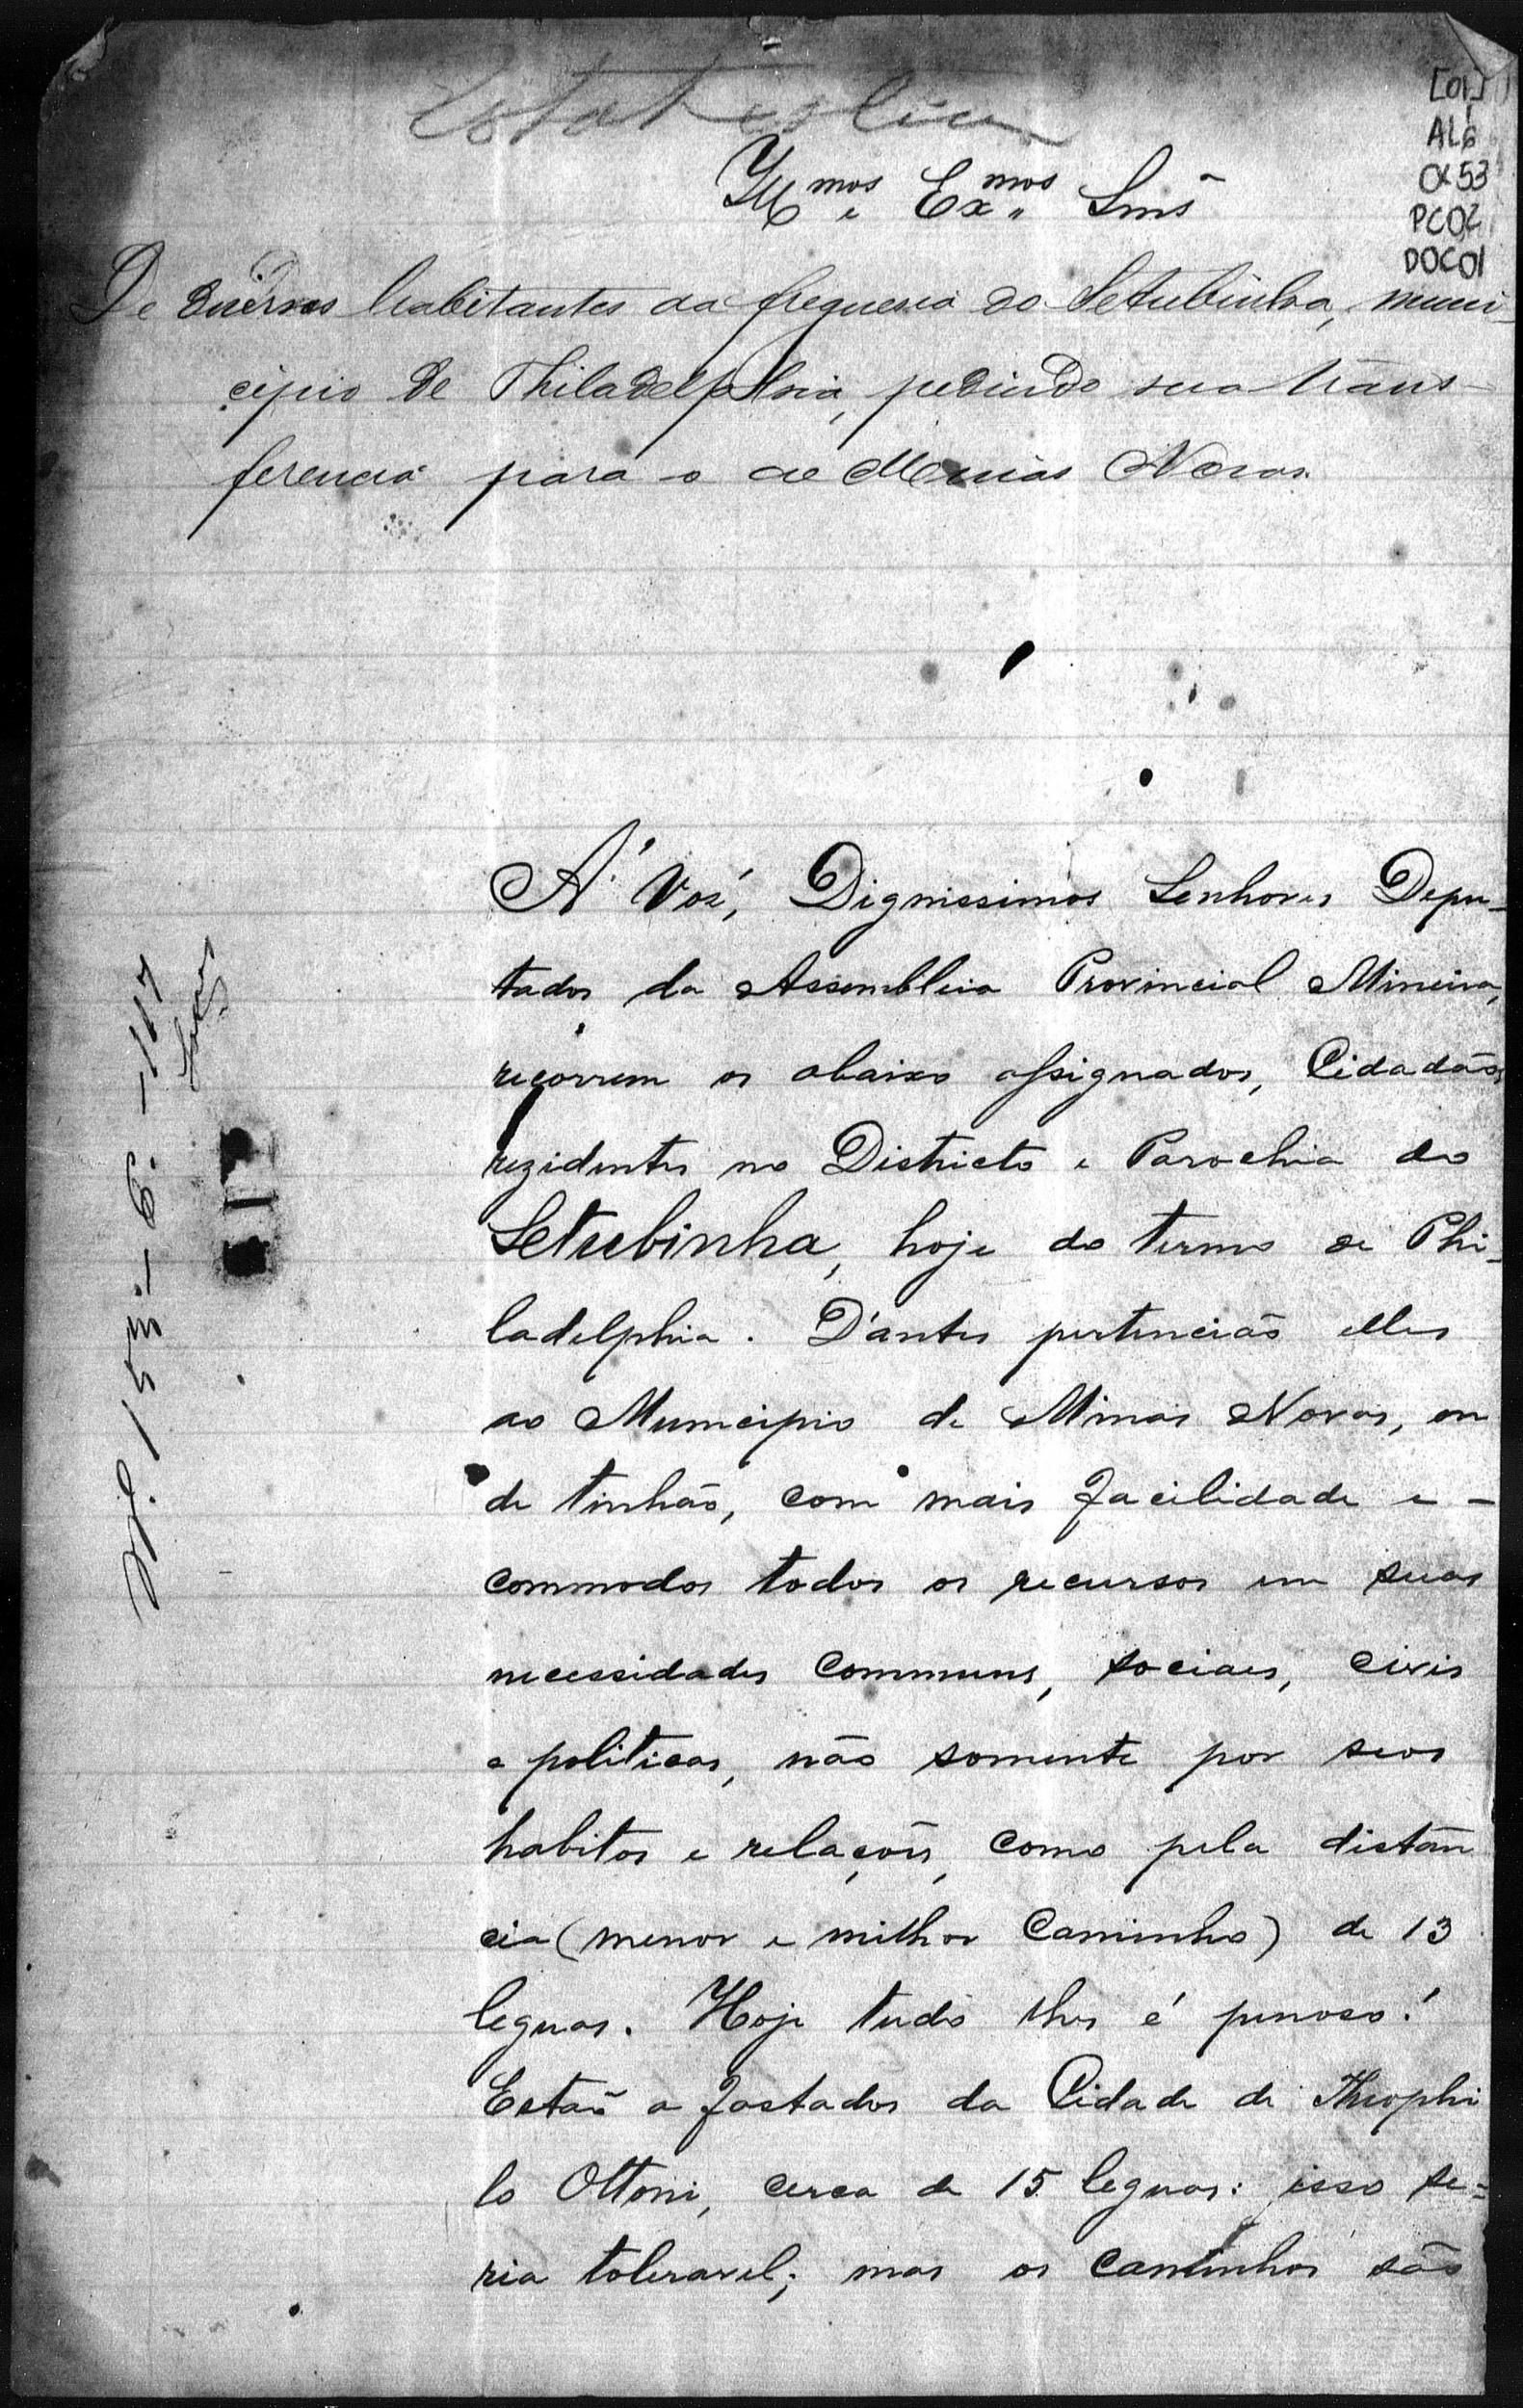 Estatistica
[01]
AL6
CX53
PC02
DOC01
Ill.mos e Ex.mos Snrs
De diversos habitantes da freguesia do Setubinha, muni-
cipio de Philadelphia, pedindo sua trans-
ferencia para o de Minas Novas.
A' Vós, Dignissimos Senhores Depu-
tados da Assemblea Provincial Mineira,
recorrem os abaixo assignados, Cidadãos
rezidentes no Districto e Parochia do
Setubinha, hoje do termo de Phi-
ladelphia. D'antes pertencião elles
ao Municipio de Minas Novas, on
de tinhão, com mais facilidade e -
commodos todos os recursos em suas
necessidades communs, sociaes, civis
e politicas, não somente por seos
habitos e relações, como pela distan
cia (menor e milhor Caminho) de 13
leguas. Hoje tudo lhes é penoso!
Estaõ a fastados da Cidade de Theophi
lo Ottoni, cerca de 15 leguas: isso se=
ria toleravel; mas os Caminhos são